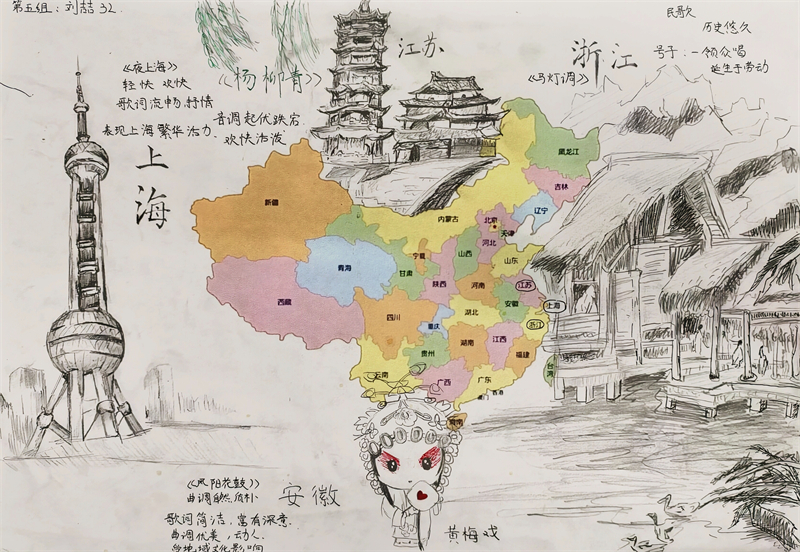 第五组：刘喆 32.
《夜上海》
轻快 欢快
歌词流畅.抒情
表现上海繁华活力.
上海
《杨柳青》
音调起伏跌宕
欢快活泼
江苏
浙江
《马灯调》
民歌
历史悠久
号子：一领众唱
诞生于劳动
黑龙江
吉林
辽宁
内蒙古
新疆
北京
天津
河北
山西
山东
宁夏
青海
甘肃
陕西
河南
江苏
安徽
上海
浙江
西藏
四川
重庆
湖北
湖南
江西
福建
贵州
云南
广西
广东
台湾
海南
香港
《凤阳花鼓》
曲调自然.质朴
歌词简洁,富有深意.
曲调优美,动人.
安徽
黄梅戏